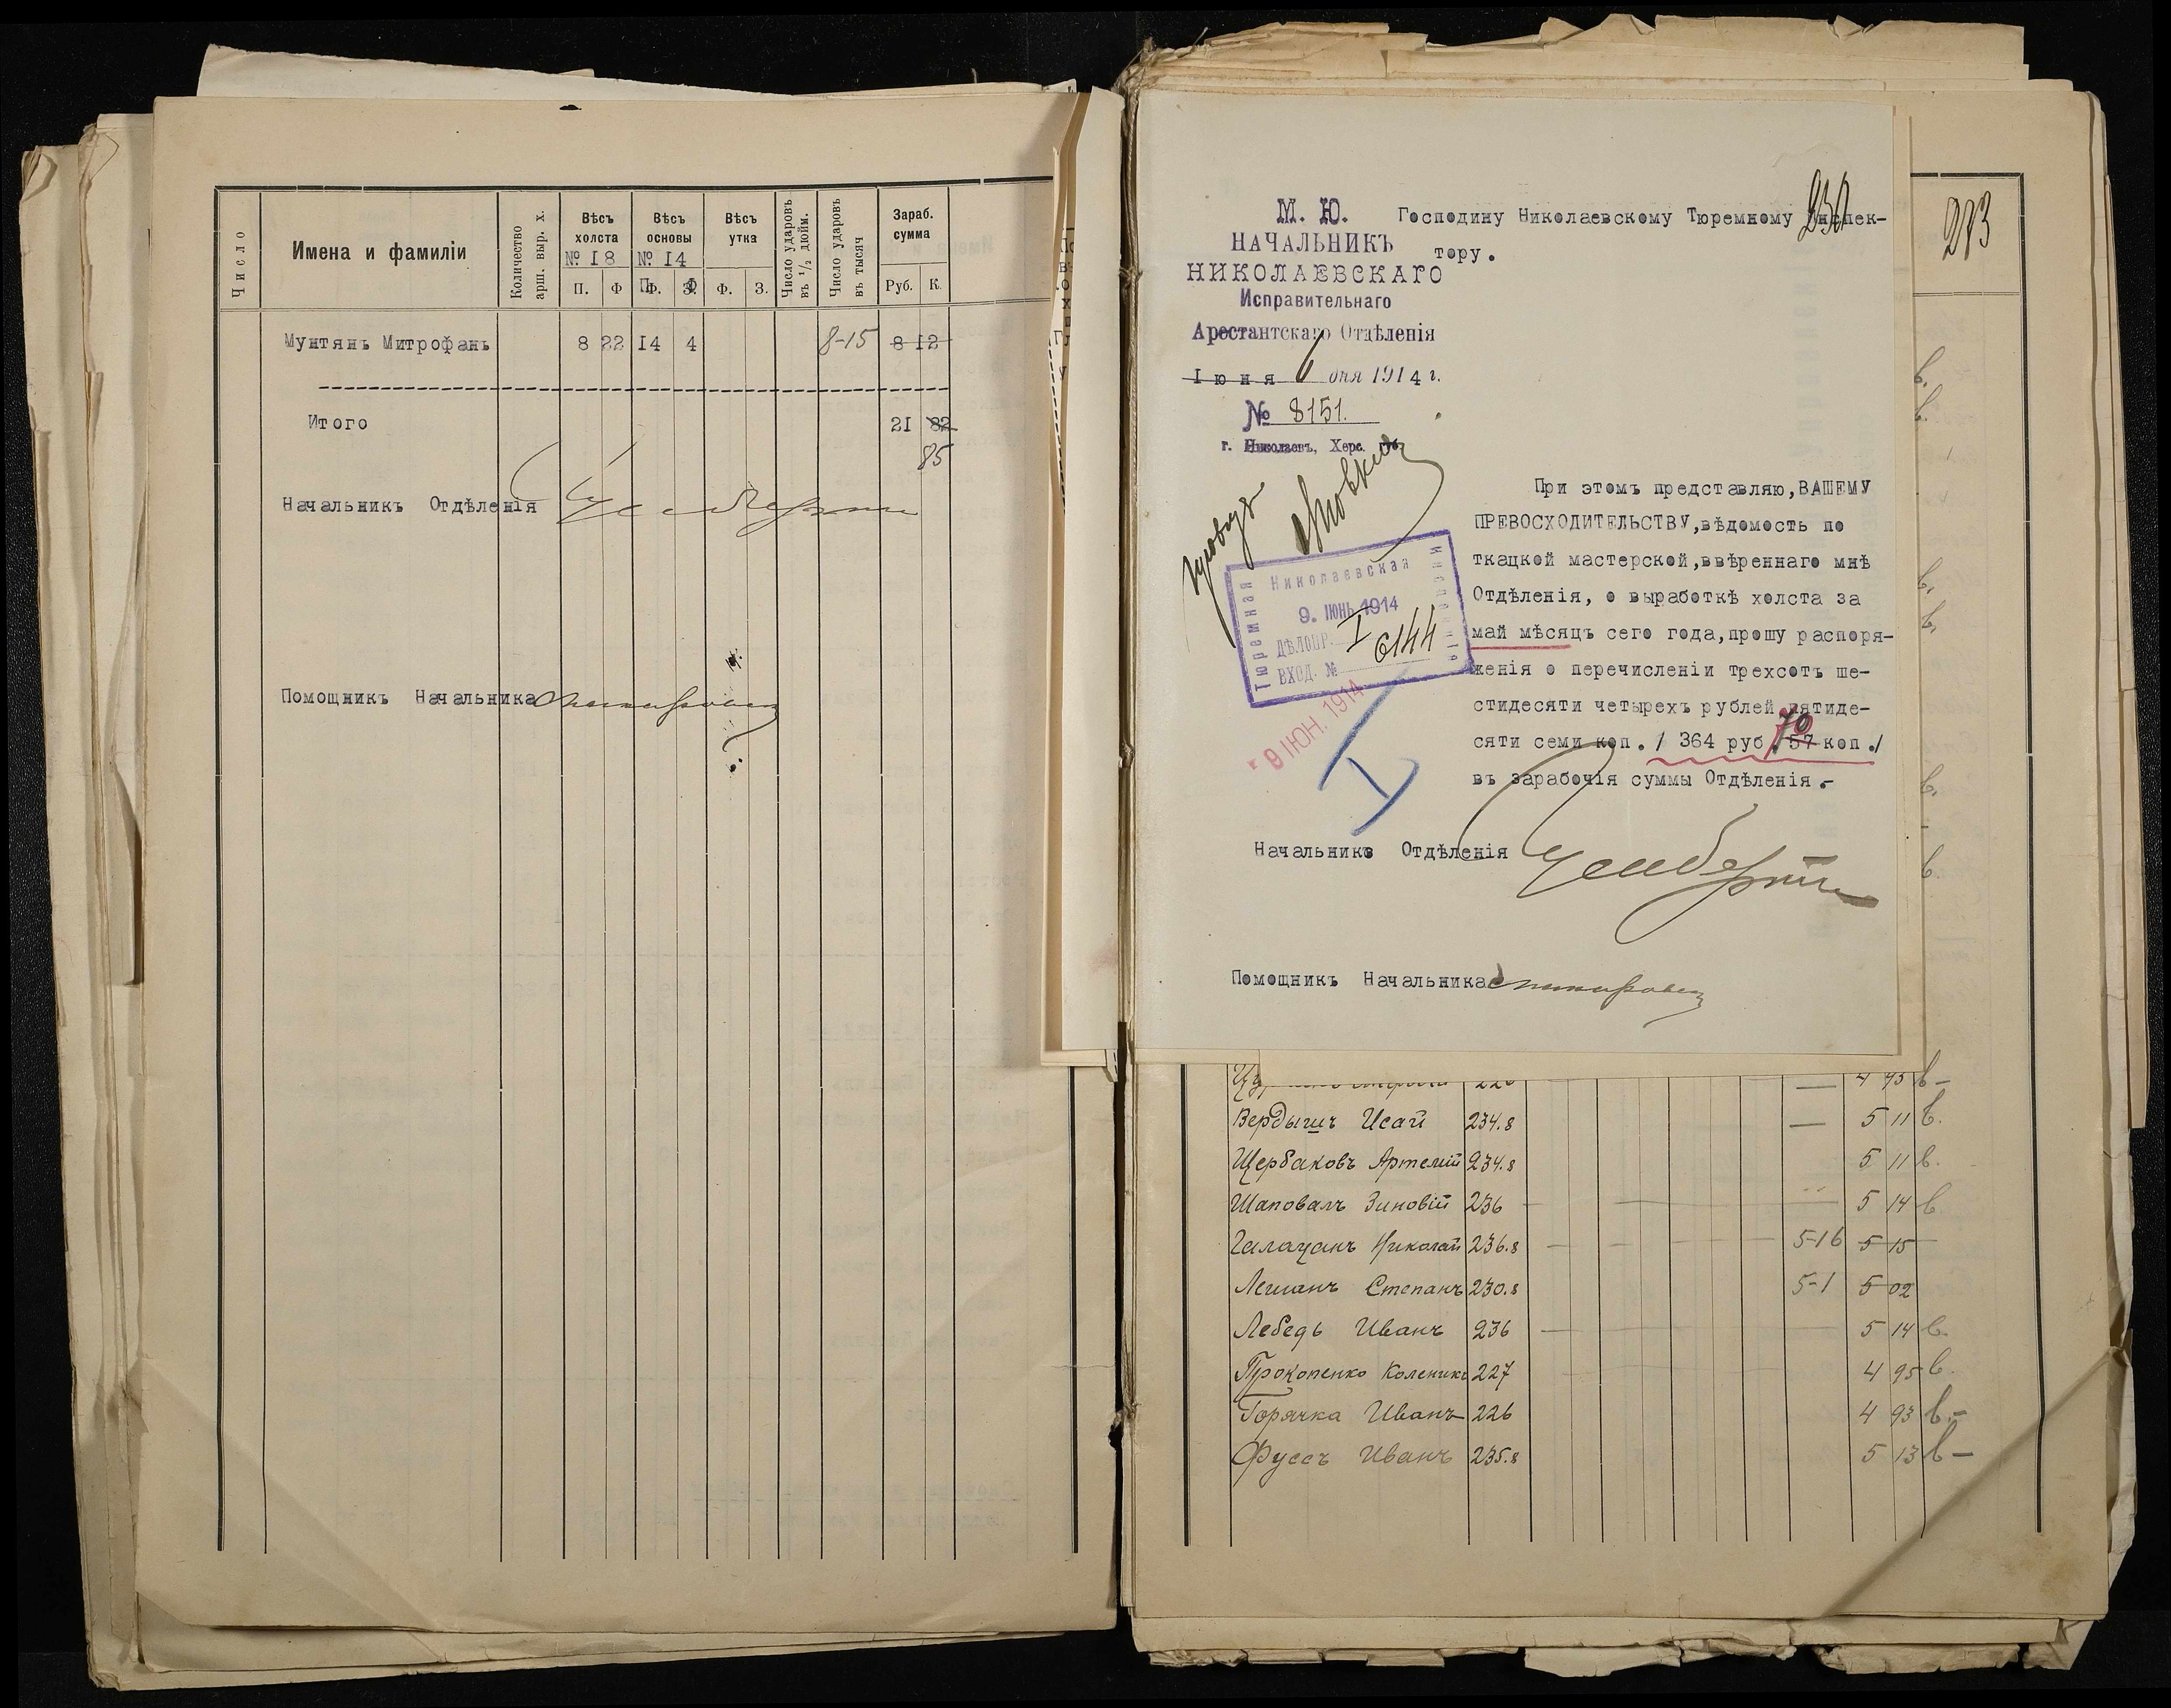 Число
Имена и фамиліи
Количество арш. выр. х.
Вѣсъ холста № 18
Вѣсъ основы № 14
Вѣсъ утка
Число ударовъ въ 1/2 дюйм.
Число ударовъ въ тысяч
Зараб. сумма
П. Ф П. Ф. Ф. З. Руб. К.
Мунтянъ Митрофанъ 8 22 14 4 8-15 8 12
Итого 21 82
85
Начальникъ Отдѣленія
Помощникъ Начальника
230
213
М. Ю.
НАЧАЛЬНИКЪ
НИКОЛАЕВСКАГО
Исправительнаго
Арестантскаго Отдѣленія
Іюня 6 дня 1914 г.
№ 8151.
г. Николаевъ, Херс. губ.
Господину Николаевскому Тюремному Инспек-
тору.
Николаевская
Тюремная
Инспекція
9. ІЮНЬ 1914
ДѢЛОПР. I
ВХОД. № 6144
9 ІЮН. 1914
I
При этомъ представляю, ВАШЕМУ
ПРЕВОСХОДИТЕЛЬСТВУ, вѣдомость по
ткацкой мастерской, ввѣреннаго мнѣ
Отдѣленія, о выработкѣ холста за
май мѣсяцъ сего года, прошу распоря-
женія о перечисленіи трехсотъ ше-
стидесяти четырехъ рублей пятиде-
70
сяти семи коп. / 364 руб. 57 коп./
въ зарабочія суммы Отдѣленія.-
Начальникъ Отдѣленія
Помощникъ Начальника
Вердышъ Исай 234.8 — 5 11 в.
Щербаковъ Артемій 234.8 5 11 в.
Шаповалъ Зиновій 236 — 5 14 в
Галацанъ Николай 236.8 5-16 5 15
Лешанъ Степанъ 230.8 5-1 5 02
Лебедь Иванъ 236 5 14 в.
Прокопенко Каленикъ 227 4 95 в.
Горячка Иванъ 226 4 93 в.-
Фуссъ Иванъ 235.8 5 13 в —